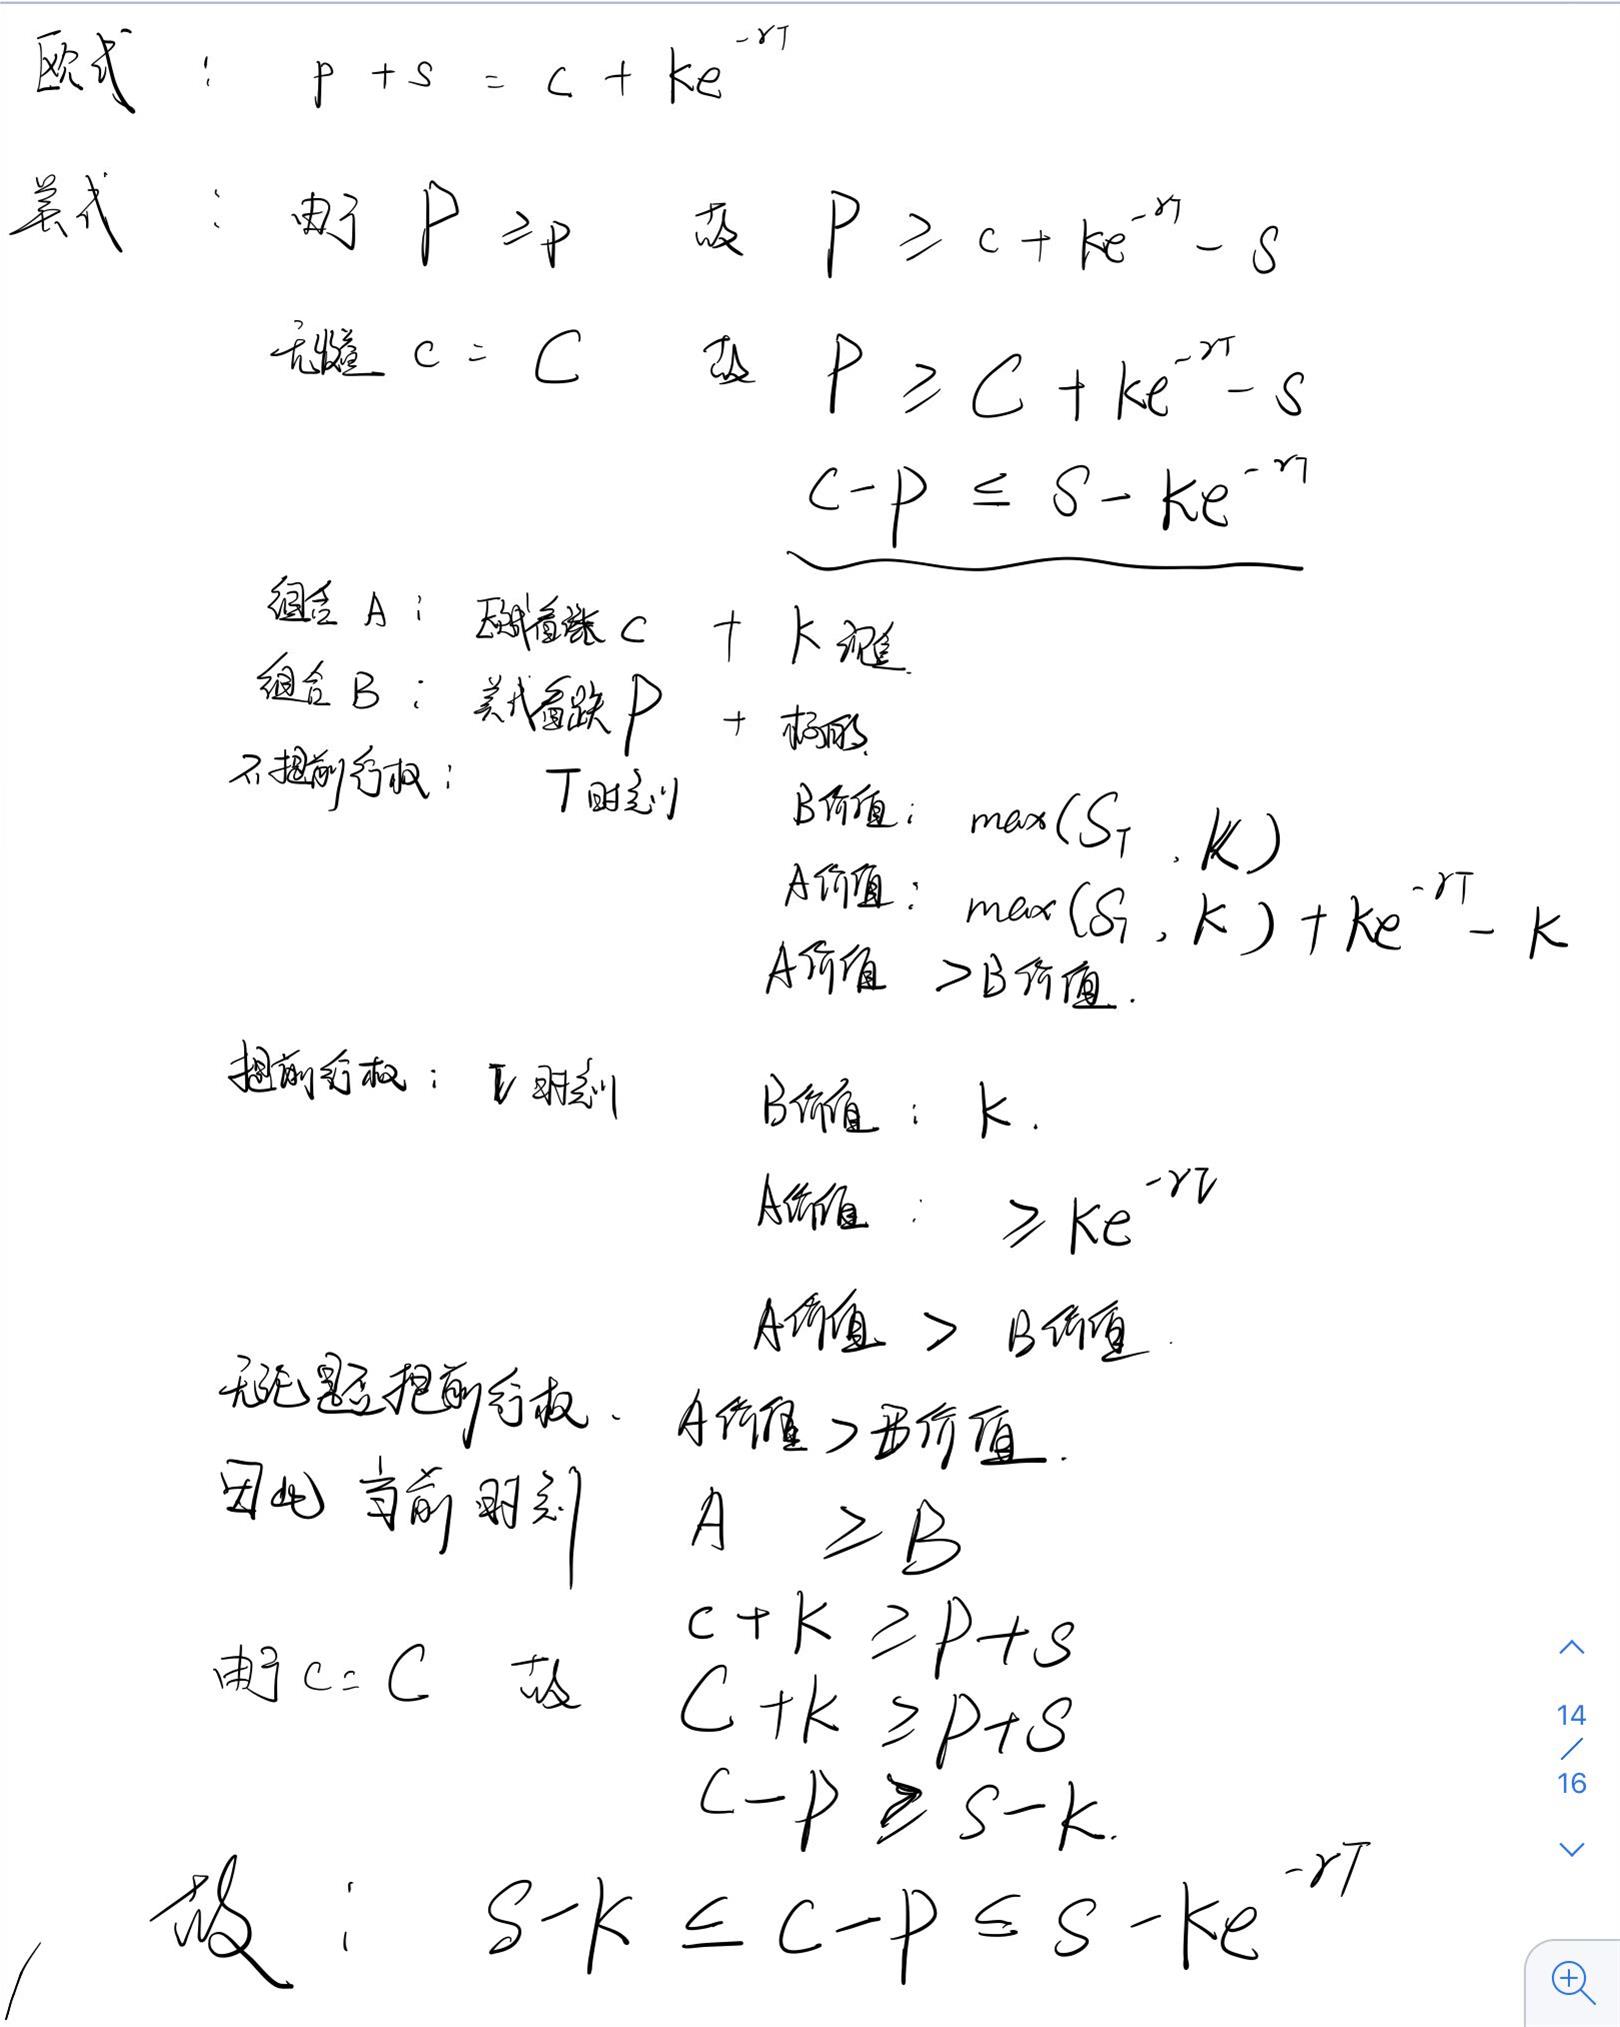 欧式 : p + s = c + ke^{-rT}
美式 : 由于 P ≥ p 故 P ≥ c + ke^{-rT} - s
无收益 c = C 故 P ≥ C + ke^{-rT} - s
C - P ≤ S - ke^{-rT}
组合 A : 欧式看涨 c + K 现金.
组合 B : 美式看跌 P + 标的.
不提前行权 : T时刻 B价值 : max(S_T , K)
A价值 : max(S_T , K) + ke^{-rT} - K
A价值 > B价值.
提前行权 : τ时刻 B价值 : K.
A价值 : ≥ ke^{-rτ}
A价值 > B价值.
无论是否提前行权. A价值 > B价值.
因此 当前时刻 A ≥ B
c + K ≥ P + S
由于 c = C 故 C + K ≥ P + S
C - P ≥ S - K.
故 : S - K ≤ C - P ≤ S - ke^{-rT}
14
/
16